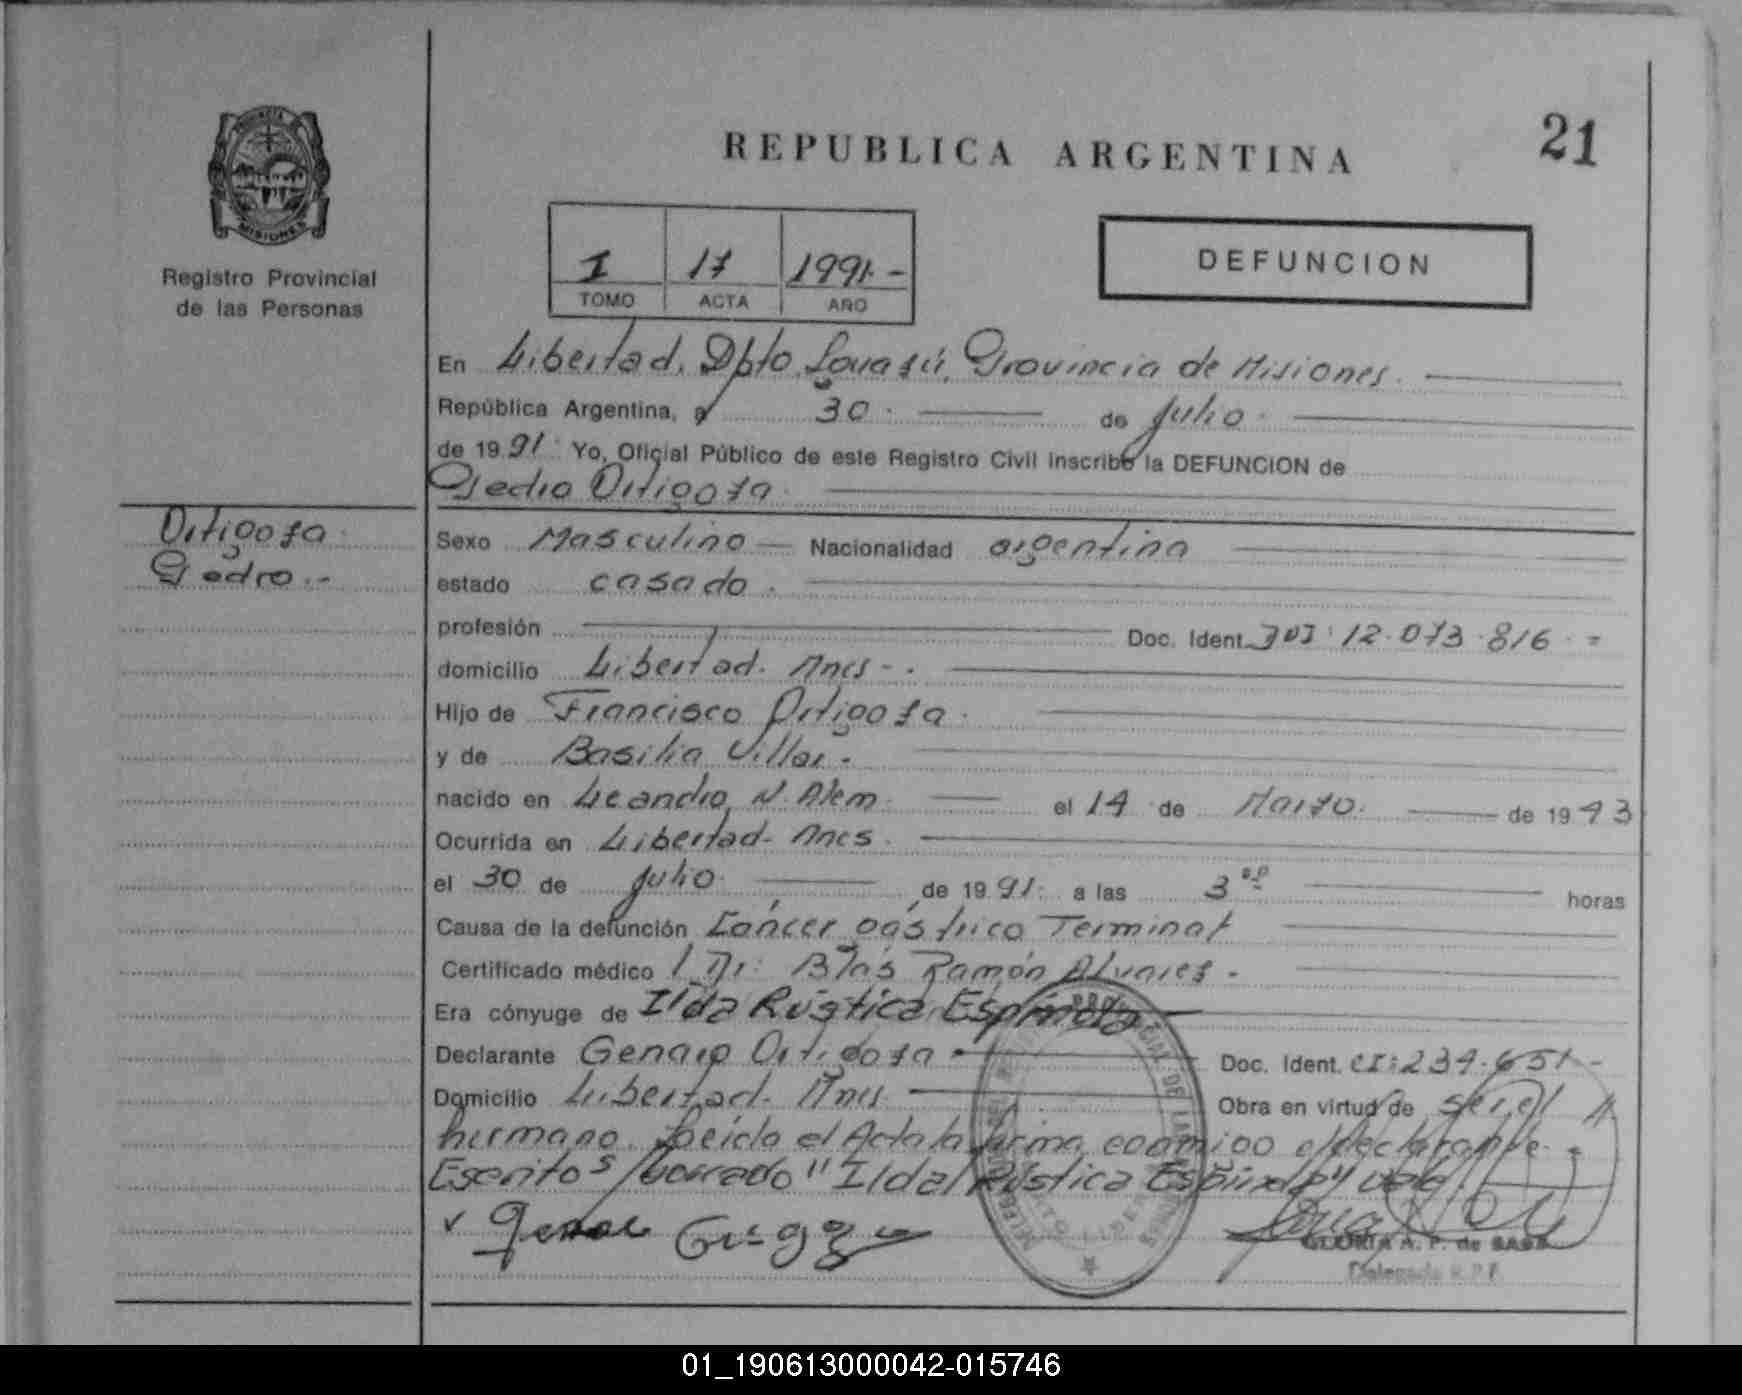 REPUBLICA ARGENTINA
21
PROVINCIA DE MISIONES
Registro Provincial
de las Personas
I 17 1991.-
TOMO ACTA AÑO
DEFUNCION
En Libertad, Dpto. Iguazú, Provincia de Misiones.
República Argentina, a 30. de Julio.
de 1991. Yo, Oficial Público de este Registro Civil inscribo la DEFUNCION de
Pedro Ortigoza.
Ortigoza
Pedro.-
Sexo Masculino Nacionalidad argentina
estado casado.
profesión Doc. Ident. DNI: 12.073.816.=
domicilio Libertad. Mnes-.
Hijo de Francisco Ortigoza.
y de Basilia Villar.
nacido en Leandro N. Alem. el 14 de Marzo. de 1943
Ocurrida en Libertad- Mnes.
el 30 de Julio. de 1991. a las 3 00 horas
Causa de la defunción Cáncer gástrico Terminal
Certificado médico Dr: Blás Ramón Alvares.
Era cónyuge de Ilda Rústica Espínola
Declarante Genaro Ortigoza Doc. Ident. CI:234.651-
Domicilio Libertad- Mnes. Obra en virtud de ser el
hermano. Leída el Acta la firma conmigo el declarante.
Escrito s/borrado "Ilda Rústica Espínola" vale.
GLORIA A. P. de SASS
Delegada R.P.P.
01_190613000042-015746